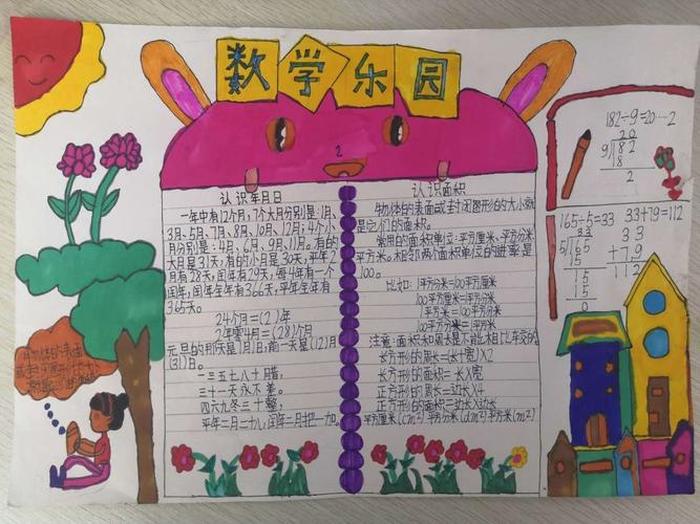 数学乐园
认识年月日
一年中有12个月,7个大月分别是:1月、
3月、5月、7月、8月、10月、12月;4个小
月分别是:4月、6月、9月、11月。有的
大月是31天,有的小月是30天,平年2
月有28天,闰年有29天,每4年有一个
闰年,闰年全年有366天,平年全年有
365天。
24个月=(2)年
2年零4月=(28)个月
元旦的那天是1月1日,前一天是(12)月
(31)日。
一三五七八十月腊,
三十一天永不差。
四六九冬三十整,
平年二月二十八,闰年二月把一加。
认识面积
物体的表面或封闭图形的大小就
是它们的面积。
常用的面积单位:平方厘米、平方分米、
平方米。相邻两个面积单位的进率是
100。
比如:1平方分米=100平方厘米
100平方厘米=1平方分米
1平方米=100平方分米
100平方分米=1平方米
注意:面积和周长是不能相比较的
长方形的周长=(长+宽)×2
长方形的面积=长×宽
正方形的周长=边长×4
正方形的面积=边长×边长
平方厘米(cm²)平方分米(dm²)平方米(m²)
182÷9=20…2
20
9 182
18
2
165÷5=33 33+79=112
33
5 165
15
15
15
0
33
+79
112
物体的表面